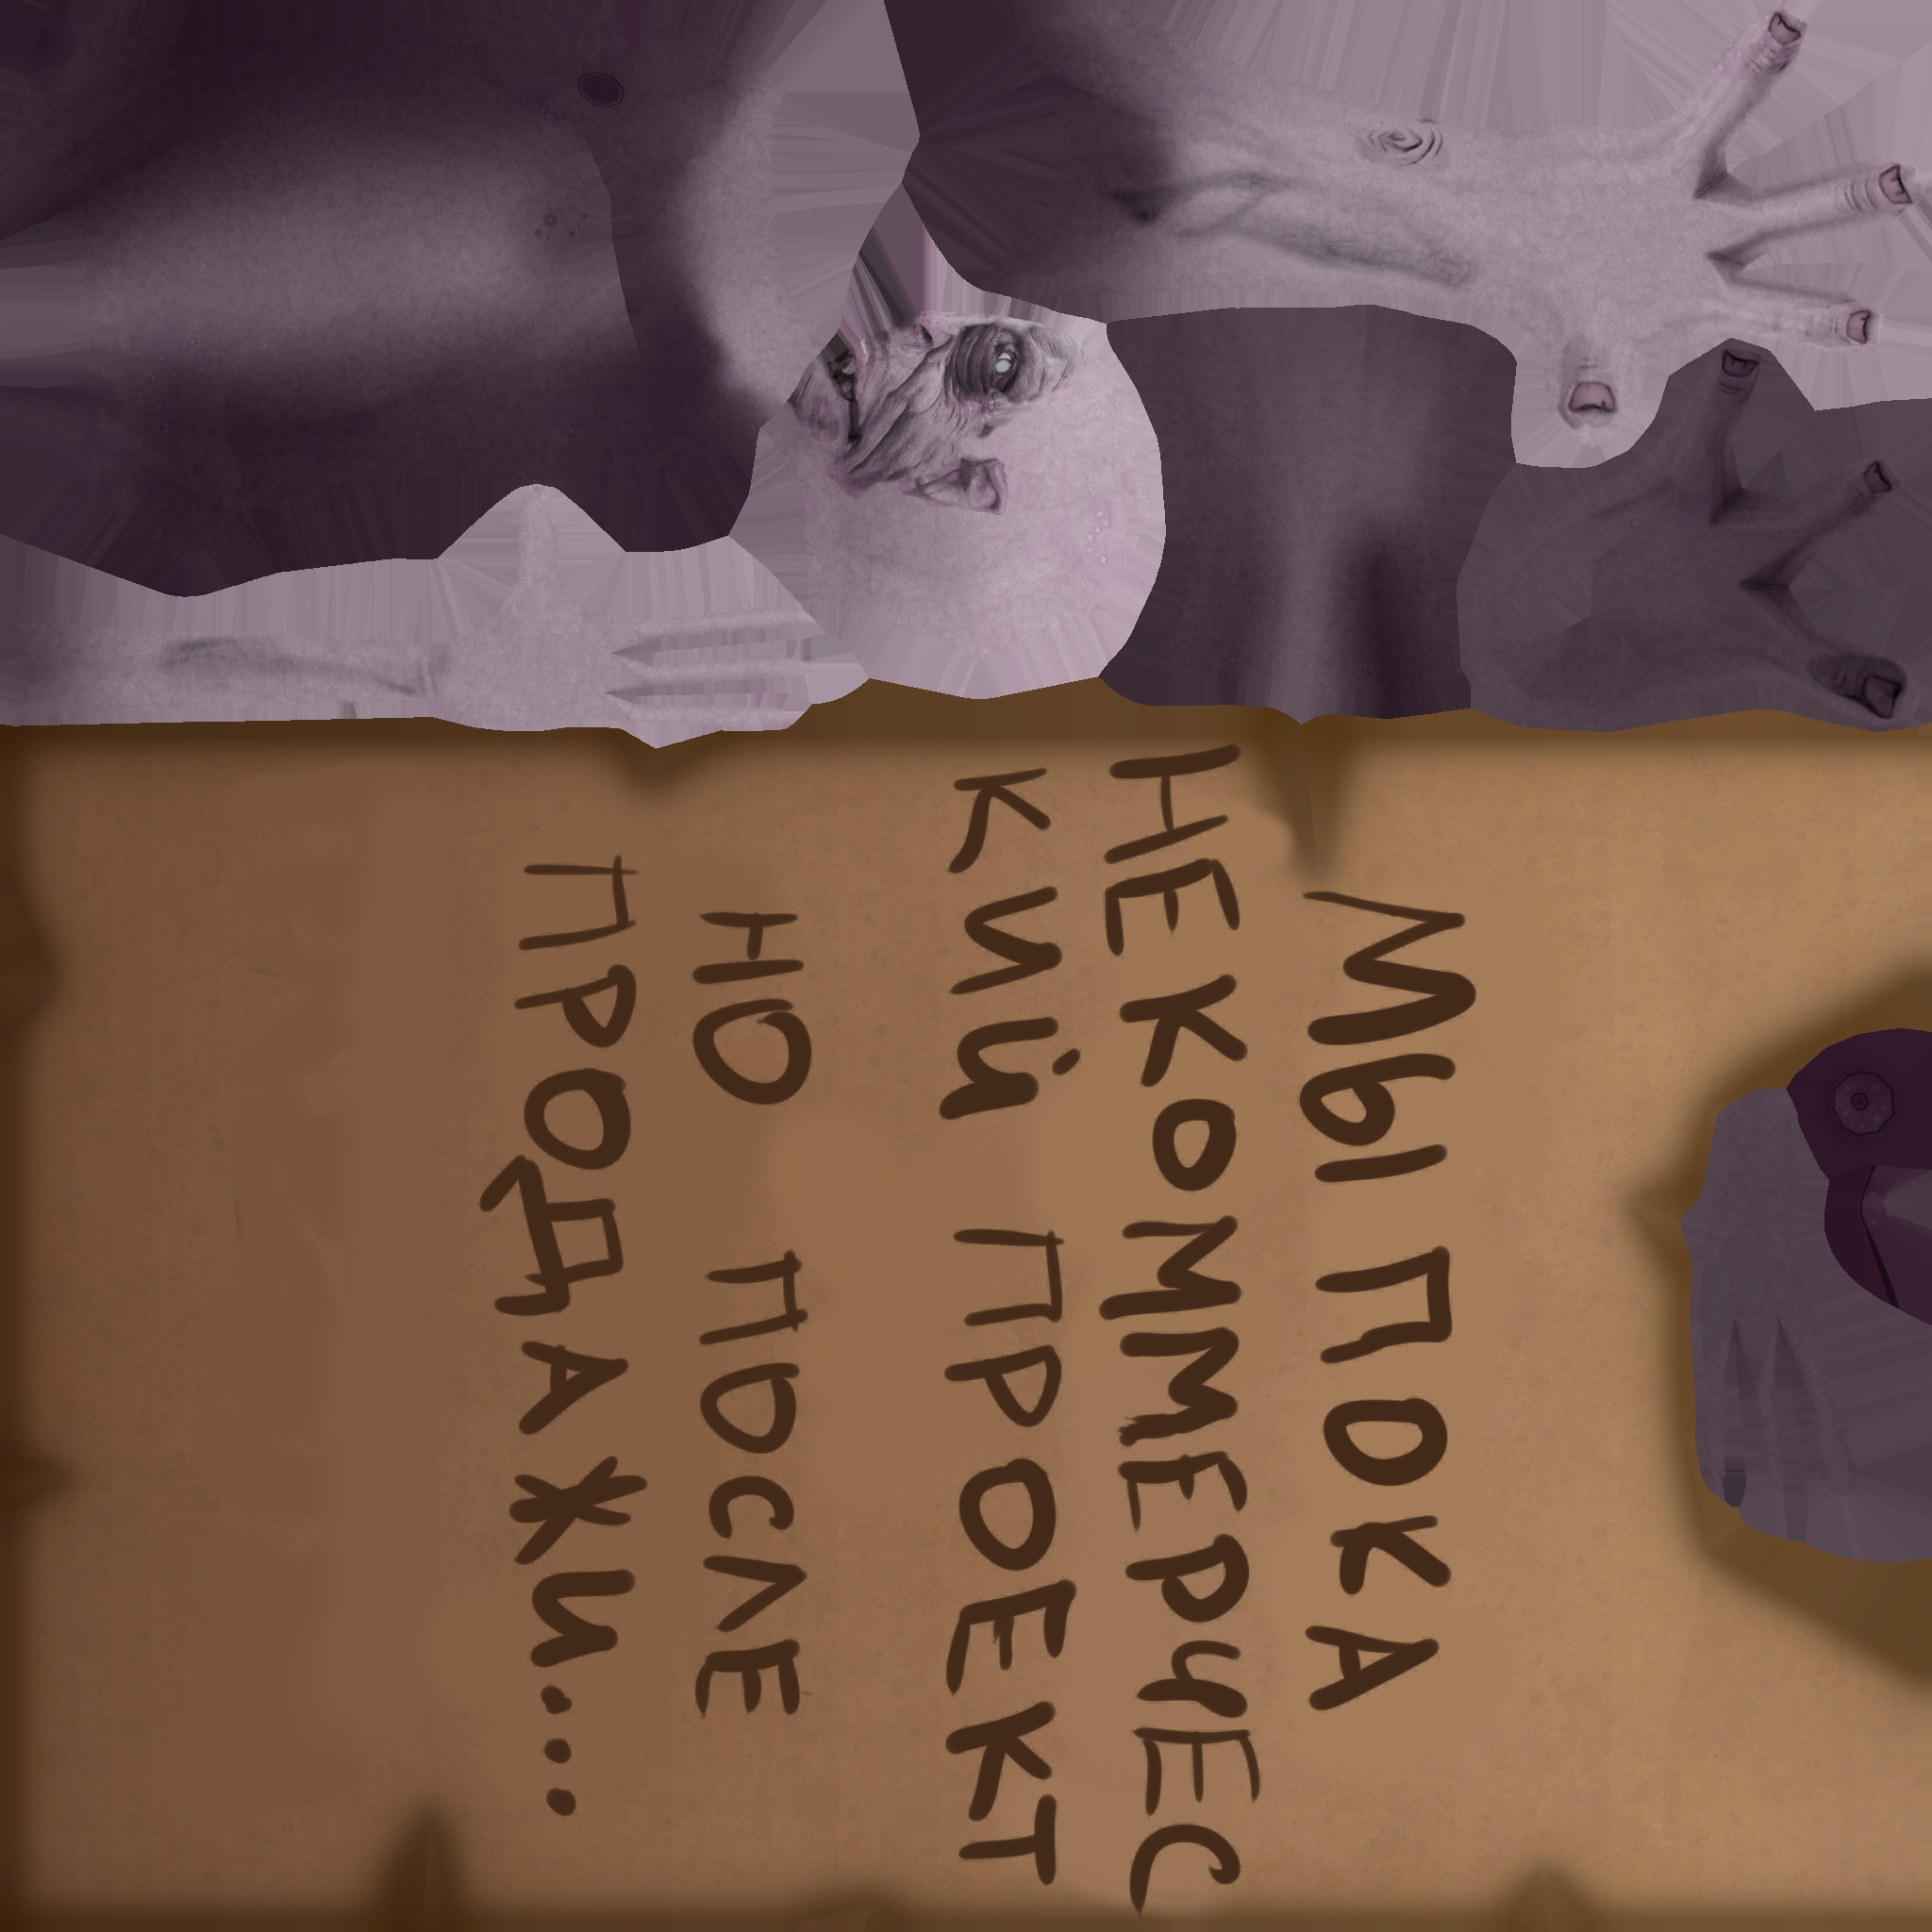 МЫ ПОКА
НЕКОММЕРЧЕС
КИЙ ПРОЕКТ
НО ПОСЛЕ
ПРОДАЖИ...